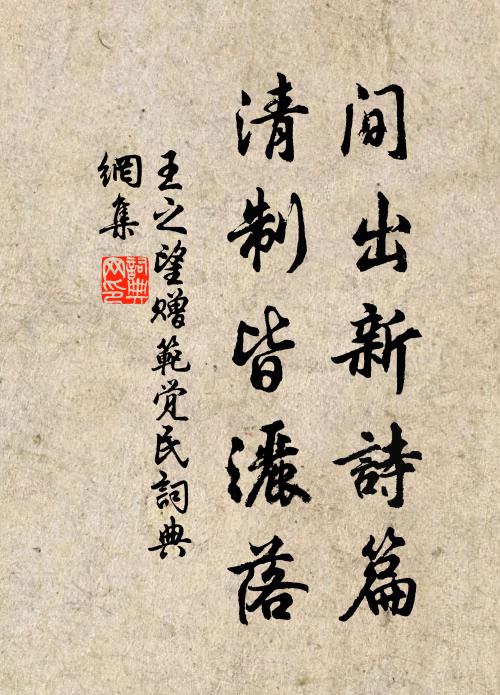 间出新詩篇
清制皆灑落
王之望贈範觉民詞典
網集
詞典網印